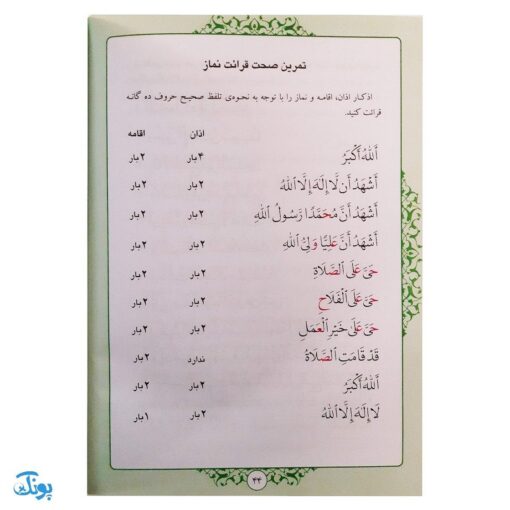 تمرین صحت قرائت نماز
اذکـار اذان، اقامه و نماز را با توجه به نحوه‌ی تلفظ صحیح حروف ده گانه
قرائت کنید.
اذان اقامه
اَللهُ أَكْبَرُ ۴ بار ۲ بار
أَشْهَدُ أَن لَّا إِلَهَ إِلَّا اللهُ ۲ بار ۲ بار
أَشْهَدُ أَنَّ مُحَمَّدًا رَسُولُ اللهِ ۲ بار ۲ بار
أَشْهَدُ أَنَّ عَلِيًّا وَلِيُّ اللهِ ۲ بار ۲ بار
حَيَّ عَلَى الصَّلَاةِ ۲ بار ۲ بار
حَيَّ عَلَى الْفَلَاحِ ۲ بار ۲ بار
حَيَّ عَلَىٰ خَيْرِ الْعَمَلِ ۲ بار ۲ بار
قَدْ قَامَتِ الصَّلَاةُ ندارد ۲ بار
اَللهُ أَكْبَرُ ۲ بار ۲ بار
لَا إِلَهَ إِلَّا اللهُ ۲ بار ۱ بار
۴۴
پونک